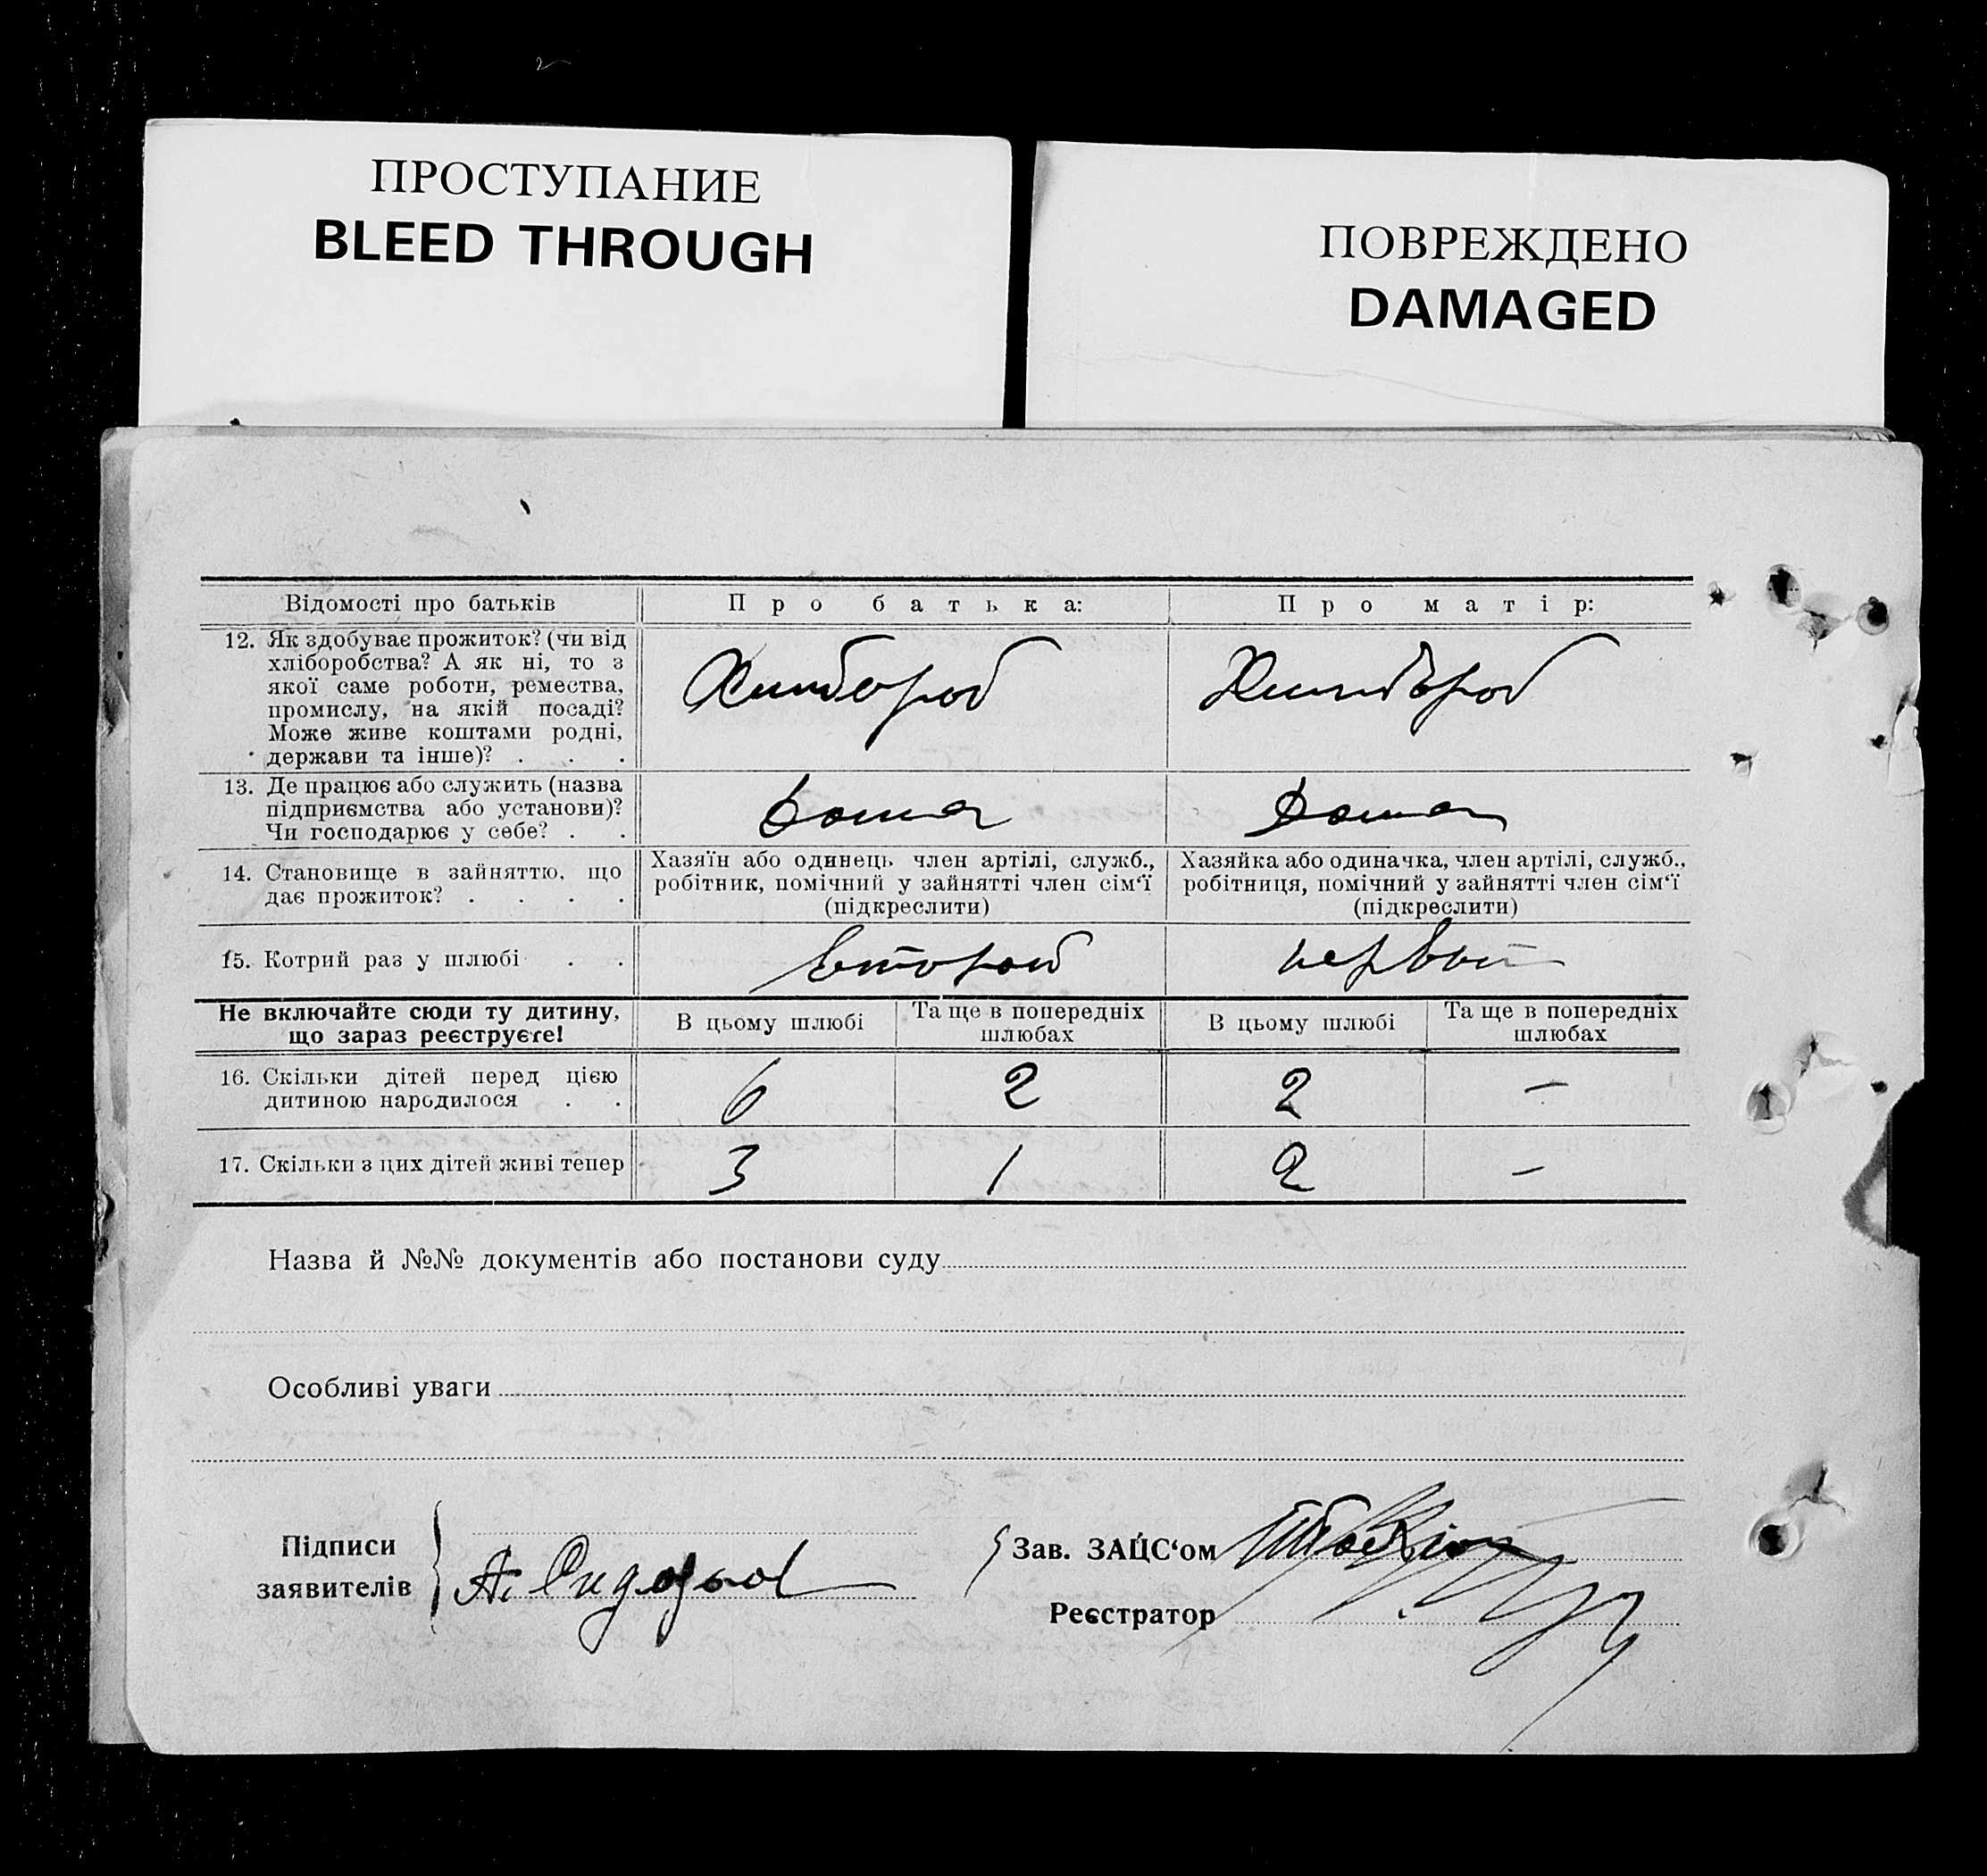 ПРОСТУПАНИЕ
BLEED THROUGH
ПОВРЕЖДЕНО
DAMAGED
Відомості про батьків
Про батька:
Про матір:
12. Як здобуває прожиток? (чи від
хліборобства? А як ні, то з
якої саме роботи, ремества,
промислу, на якій посаді?
Може живе коштами родні,
держави та інше)? . . .
Хлибороб
Хлибороб
13. Де працює або служить (назва
підприємства або установи)?
Чи господарює у себе? . .
дома
дома
14. Становище в зайняттю, що
дає прожиток? . . . .
Хазяїн або одинець член артілі, служб.,
робітник, помічний у зайнятті член сім‘ї
(підкреслити)
Хазяйка або одиначка, член артілі, служб.,
робітниця, помічний у зайнятті член сім‘ї
(підкреслити)
15. Котрий раз у шлюбі . .
второй
первый
Не включайте сюди ту дитину,
що зараз реєструєте!
В цьому шлюбі
Та ще в попередніх
шлюбах
В цьому шлюбі
Та ще в попередніх
шлюбах
16. Скільки дітей перед цією
дитиною народилося . .
6 2 2 —
17. Скільки з цих дітей живі тепер
3 1 2 —
Назва й №№ документів або постанови суду
Особливі уваги
Підписи
заявителів
А. Сидоров
Зав. ЗАЦС‘ом
Реєстратор